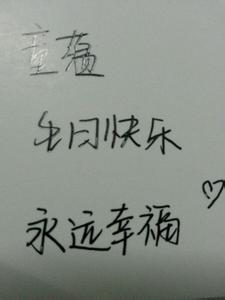 生日快乐
永远幸福